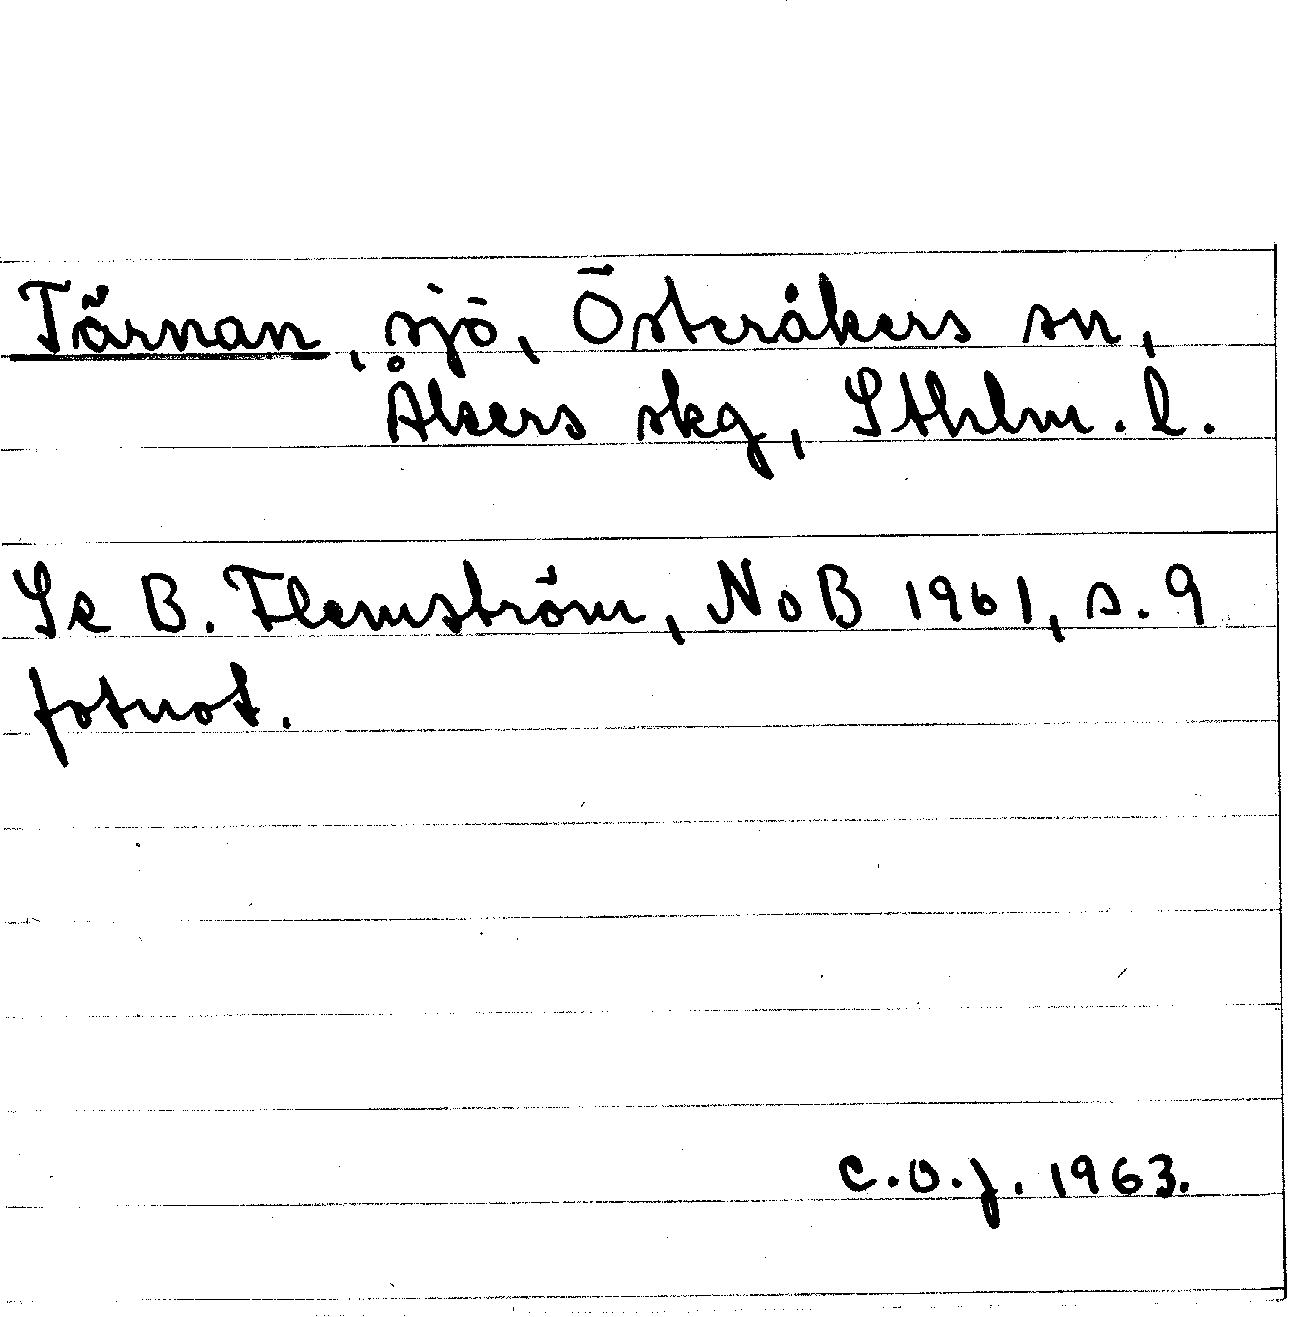 Tärnan, sjö, Österåkers sn,
Åkers skg, Sthlm. l.
Se B. Flemström, NoB 1961, s. 9
fotnot.
C.O.J. 1963.